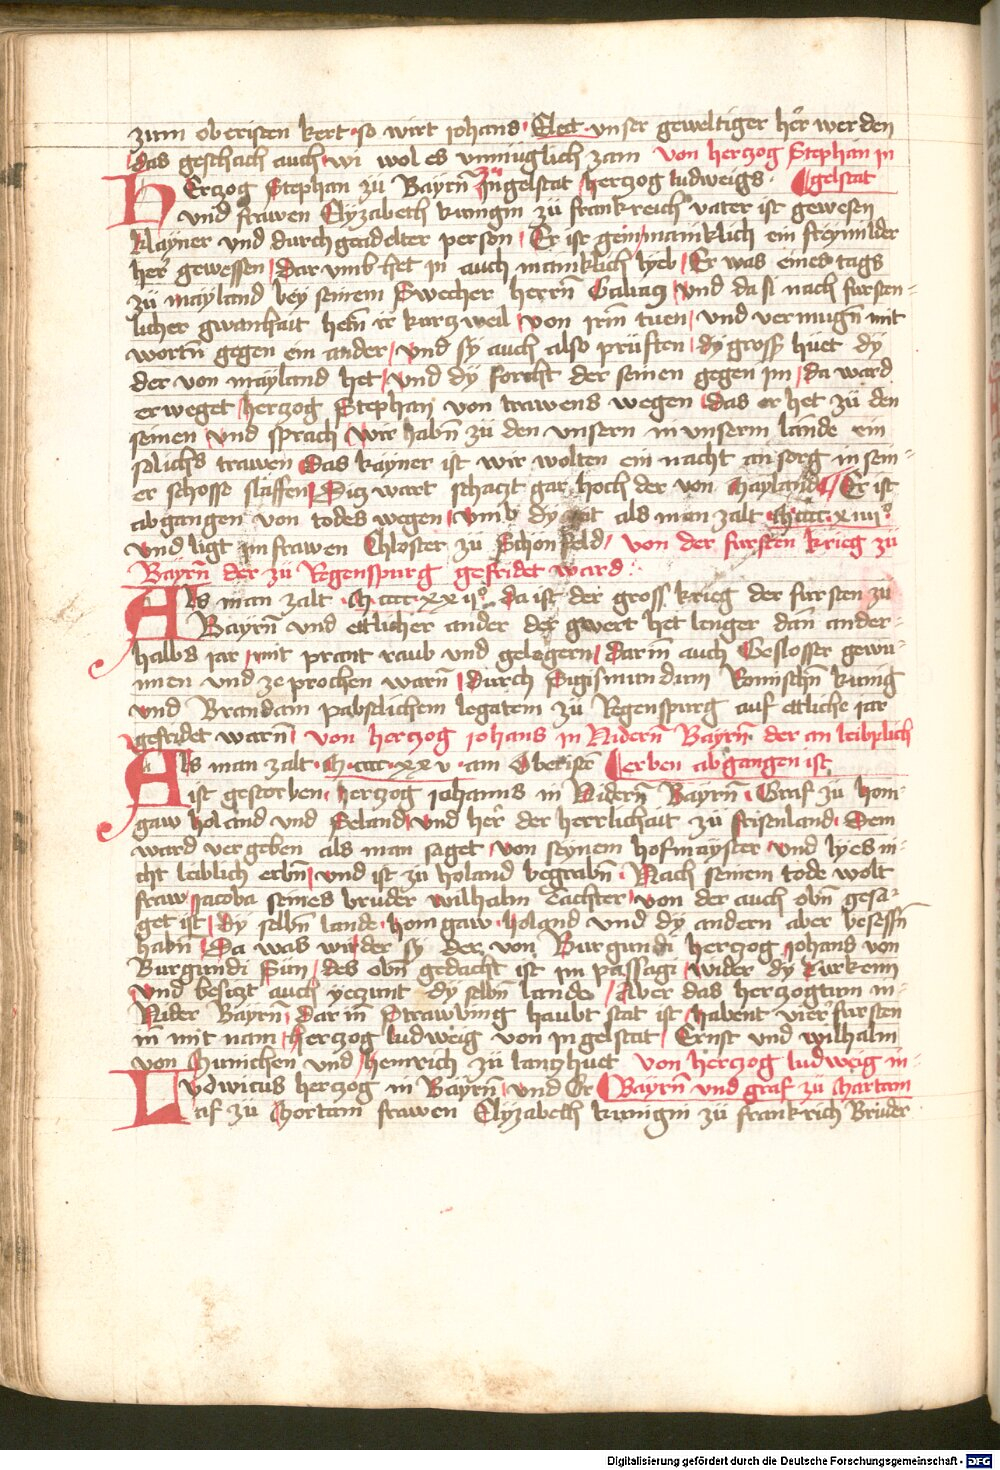 zum oberisten kert · so wirt johans · Elect · unser geweltiger her werden
das geschach auch wi wol es unmüglich zam von herczog Stephan in
HErczog Stephan zü Bayrñ zu Jngelstat herczog ludweigs · gelstat
und frawen Elyzabeth kunigin zü frankreich vater ist gewesen
klayner und durchgeadelter person / Er ist gein maniklich ein freymilder
her gewessen / Dar umb het in auch maniklich lyeb / Er was eines tags
zü mayland bey seinem Swecher herrñ Galiacz und da si nach fursten-
licher gwanhait heñ ir kurczweil / von irm tuen / und vermugñ mit
wortñ gegen ein ander / und sy auch also prüften / dy gross huet dy
der von mayland het / und dy forcht der seinen gegen im / da ward
erweget / herczog Stephan von trawens wegen / das er het zü den
seinen und sprach / wir habñ zü den unsern in unserm lande ein
solichs trawen Das kayner ist wir wolten ein nacht an sorg in sein-
er schoss slaffen / Dicz wart schaczt gar hoch der von Mayland / Er ist
abgangen von todes wegen / umb dy zeit als man zalt · M cccc · xiiii°
und ligt im frawen Chloster zü Schönfeld / von der fursten krieg zü
Bayrñ der zü Regenspurg gefridet ward ·
Als man zalt · M cccc · xx ii° · da ist der gross krieg der fursten zu
Bayrñ und ettlicher ander der gwert het lenger dañ ander-
halbs iar / mit prant raub und gelegern / dar iñ auch Geslosser gewu-
nnen und zeprochen warñ / Durch Sigismundum Romischñ kunig
und Brandam pabstlichem legatem zü Regenspurg auf ettliche iar
gefridet warñ / von herczog johans in Nidern Bayrñ der an leibplich
Als man zalt · M · cccc · xx v · am Oberistē erben abgangen ist
ist gestorben / herczog iohanns in Niderñ Bayrñ / Graf zu honi-
gaw holand und Seland und her der herrlichait zü frisenland · Dem
ward vergeben als man saget / von seynem hofmayster / und lyes ni-
cht leiblich erbñ / und ist zü holand begrabñ · Nach seinem tode wolt
fraw jacoba seines bruder wilhalm Tachter / von der auch obñ gesa-
get ist / dy selbñ lande · honigaw · holand und dy andern aber besessñ
habñ / Da was wider sy der von Burgundi herczog johans von
Burgundi Sün / des obñ gedacht ist im passagi / wider dy Turkenn
und besiczt auch yeczunt dy selbñ lande / Aber das herczogtum in-
Nider Bayrñ / Dar iñ Strawbing haubt stat ist / habent vier fursten
iñ mit nam / herczog ludweig von ingelstat / Ernst und wilhalm
von Munichen und / heinrich zü lanczhuet von herczog ludweig in-
Ludwicus herczog in Bayrñ / und Gr Bayrñ und graf zü Martani
af zü Mortani frawen Elyzabeth kunigin zü frankrich Bruder
Digitalisierung gefördert durch die Deutsche Forschungsgemeinschaft - DFG